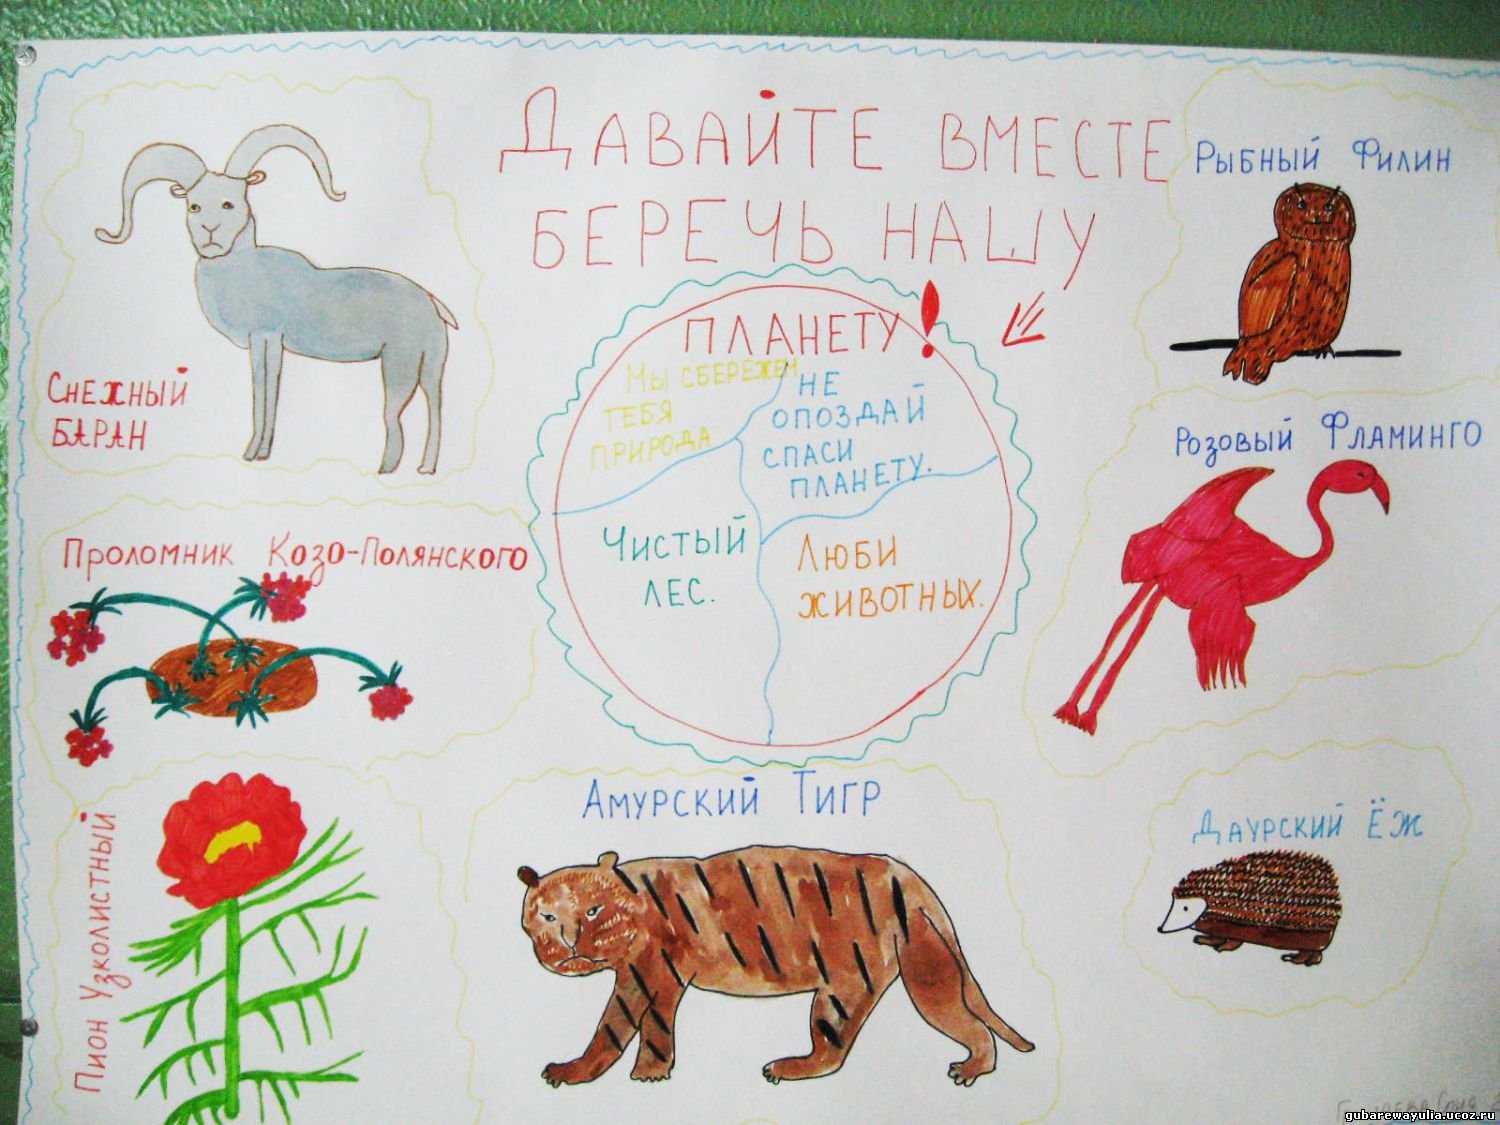 ДАВАЙТЕ ВМЕСТЕ
БЕРЕЧЬ НАШУ
ПЛАНЕТУ!
МЫ СБЕРЕЖЕМ
ТЕБЯ
ПРИРОДА
НЕ
ОПОЗДАЙ
СПАСИ
ПЛАНЕТУ.
ЧИСТЫЙ
ЛЕС.
ЛЮБИ
ЖИВОТНЫХ.
СНЕЖНЫЙ
БАРАН
ПРОЛОМНИК КОЗО-ПОЛЯНСКОГО
ПИОН УЗКОЛИСТНЫЙ
АМУРСКИЙ ТИГР
РЫБНЫЙ ФИЛИН
РОЗОВЫЙ ФЛАМИНГО
ДАУРСКИЙ ЁЖ
gubarewayulia.ucoz.ru